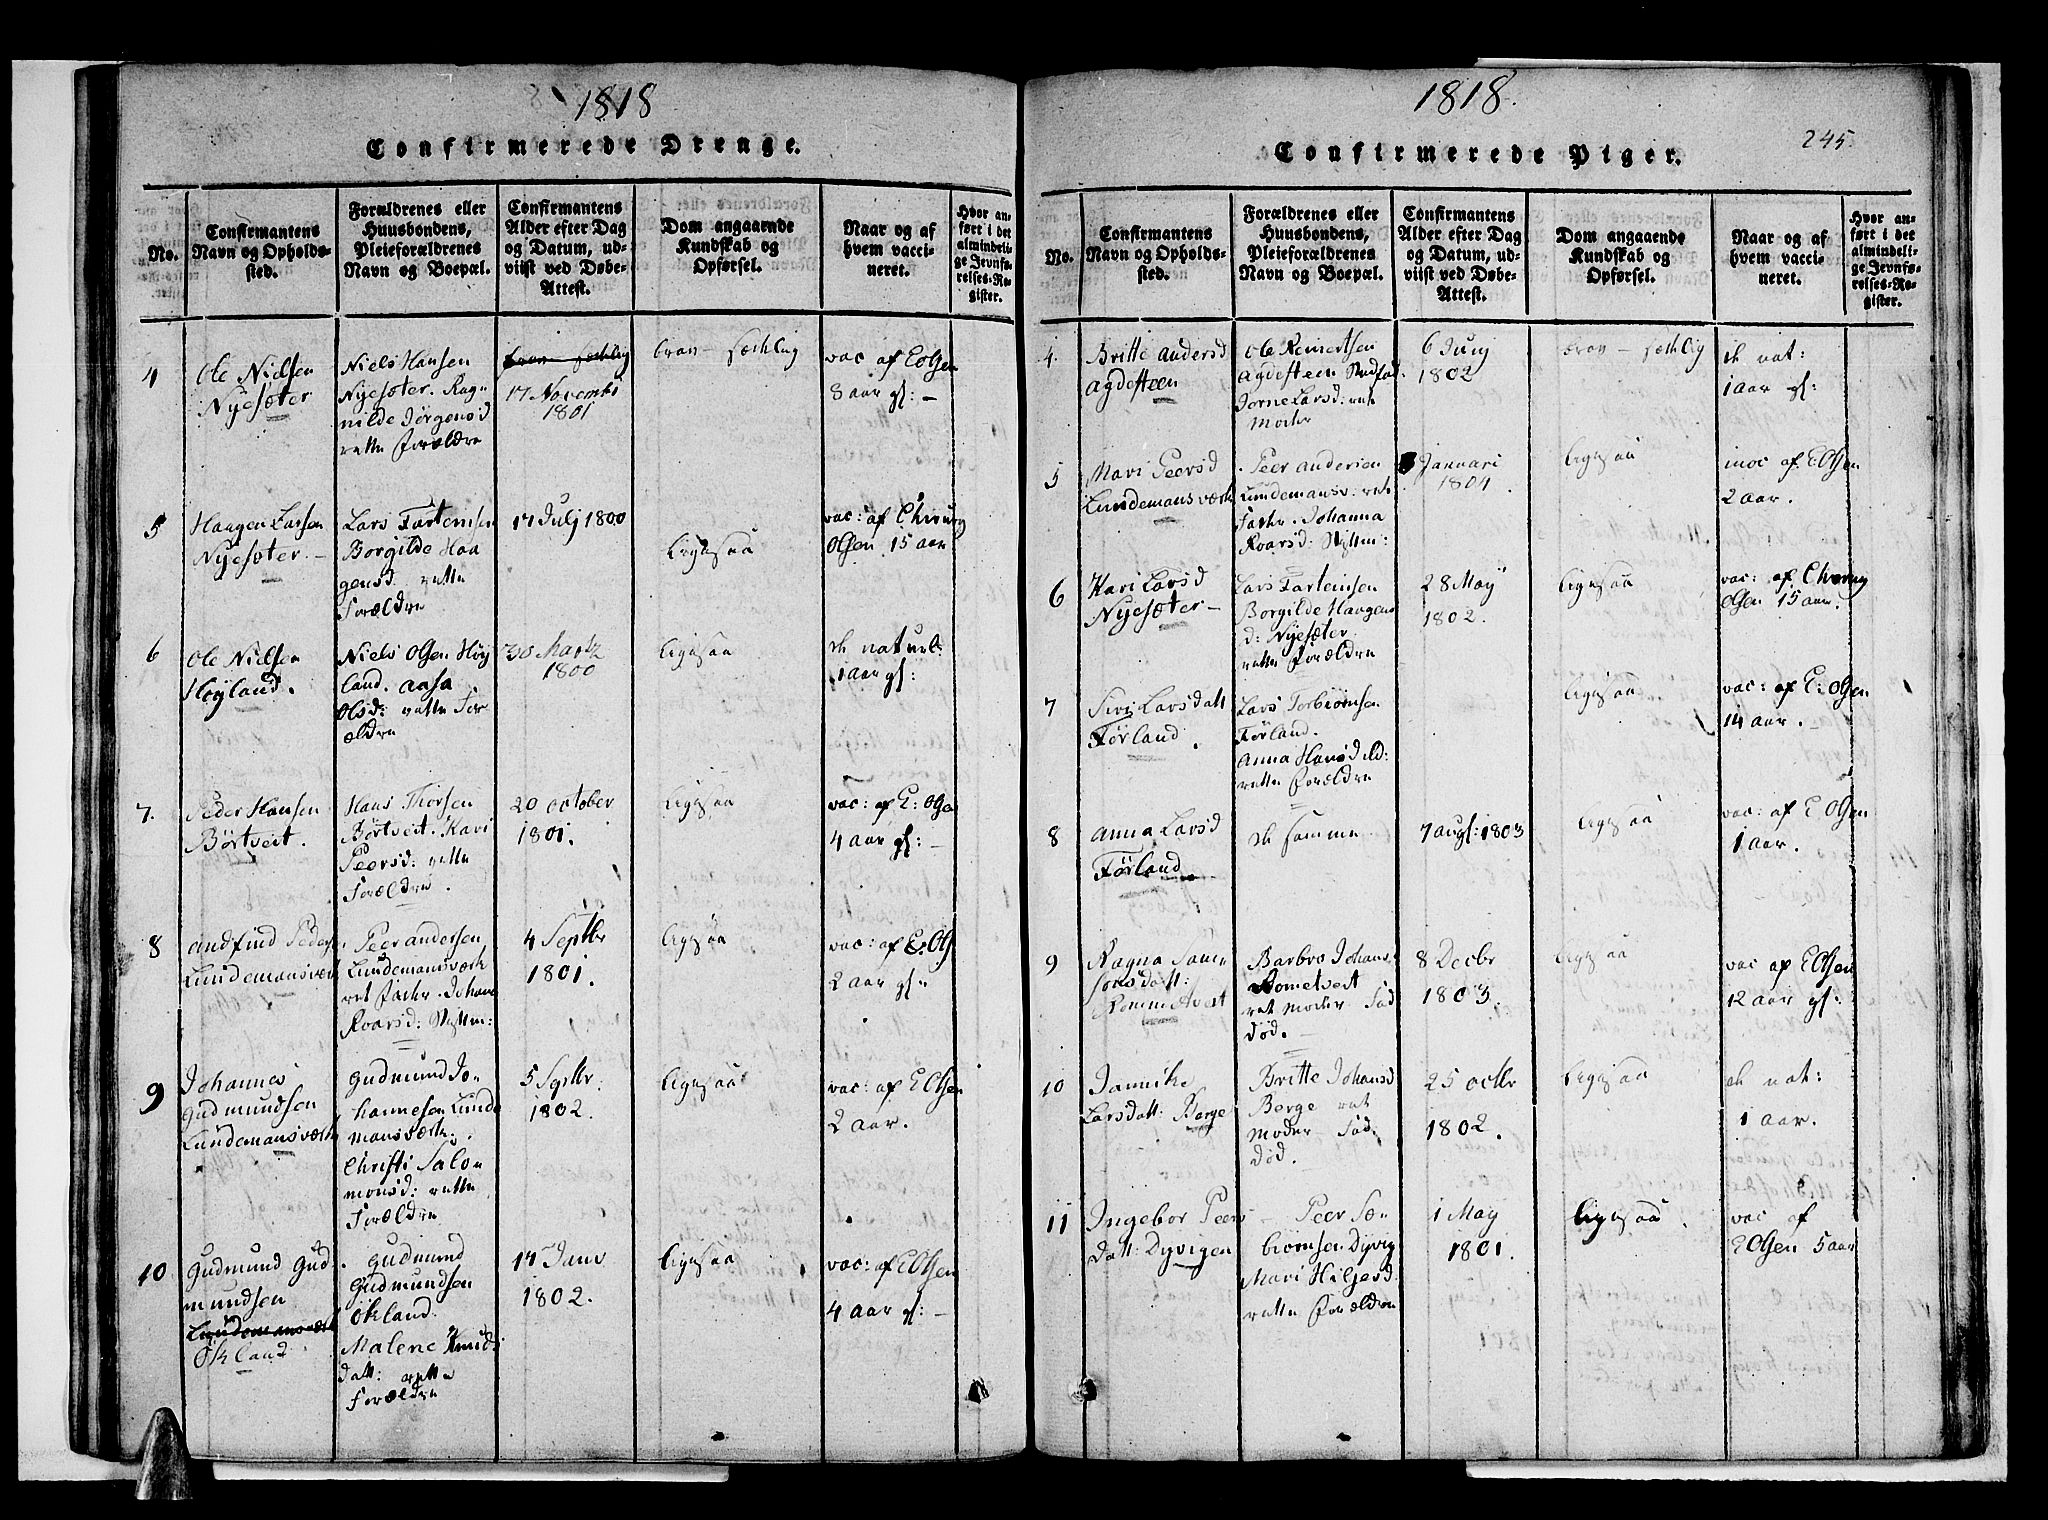 1818
Confirmerede Drenge.
No.
Confirmantens
Navn og Opholds-
sted.
Forældrenes eller
Huusbondens,
Pleieforældrenes
Navn og Boepæl.
Confirmantens
Alder efter Dag
og Datum, ud-
viist ved Døbe-
Attest.
Dom angaaende
Kundskab og
Opførsel.
Naar og af
hvem vacci-
neret.
Hvor an-
ført i det
almindeli-
ge Jevnfø-
relses-Re-
gister.
4
Ole Nielsen
Nyesæter
Niels Hansen
Nyesæter. Rag
nilde Jørgensd
rette forældre
17 Novembr
1801
brav sædelig
vac af E Olsen
8 aar gl: –
5
Haagen Larsen
Nyesæter –
Lars Tartensen
Borgilde Haa
gensd. rette
Forældre
17 Julj 1800
ligesaa
vac: af Chirurg
Olsen 15 aar
6
Ole Nielsen
Høyland.
Niels Olsen Høy
land. Aasa
Olsd: rette For
ældre
30 Martz
1800
ligesaa
de naturl:
1 aar gl:
7.
Peder Hansen
Börtveit.
Hans Thorsen
Börtveit. Kari
Peersd: rette
Forældre.
20 October
1801.
ligesaa
vac: af E: Olsen
4 aar gl: –
8
Andfind Peders
Lundemansværk
Peer Andersen
Lundemansværk
ret fader. Johana
Roarsd: Stifm:
4 Septbr
1801.
ligesaa
vac: af E: Ols
2 aar gl:
9
Johannes
Gudmundsen
Lundemansværk
Gudmund Jo-
hannesen Lunde
mansværk.
Christi Salo-
monsd: rette
Forældre
5 Septbr.
1802.
ligesaa
vac: af E Olsen
2 aar.
10
Gudmund Gud
mundsen
Lundemansværk
Økland
Gudmund
Gudmundsen
Økland.
Malene Knuds
datt: rette
Forældre
14 Janv
1802.
ligesaa
vac: af E Olsen
4 aar gl: –
1818.
245
Confirmerede Piger.
No.
Confirmantens
Navn og Opholds-
sted.
Forældrenes eller
Huusbondens,
Pleieforældrenes
Navn og Boepæl.
Confirmantens
Alder efter Dag
og Datum, ud-
viist ved Døbe-
Attest.
Dom angaaende
Kundskab og
Opførsel.
Naar og af
hvem vacci-
neret.
Hvor an-
ført i det
almindelig-
ge Jevnfø-
relses-Re-
gister.
4.
Britte Andersd
Agdesteen
Ole Reinertsen
Agdesteen Stedfad.
Jorne Larsd: rete
Moder
6 Junj
1802
brav sædelig
de nat:
1 aar gl:
5
Mari Peersd
Lundemansværk
Peer Andersen
Lundemansv: ret
Fader. Johanna
Roarsd: Stifm:
Januari
1804
ligesaa
inoc af E Olsen
2 aar.
6
Kari Larsd
Nyesæter –
Lars Tartensen
Borgilde Haagens
d: Nyesæter
rette forældre
28 Maÿ
1802.
ligesaa
vac: af Chirurg
Olsen 15 aar.
7
Siri Larsdatt
Førland.
Lars Torbiørnsen
Førland.
Anna Hansd
rette forældre
ligesaa
vac: af E: Olsen
14 aar.
8
Anna Larsd
Førland
de samme
7 augs: 1803
ligesaa
vac: af E Olsen
1 aar.
9
Ragna Sam-
sonsdatt:
Rommetveit
Barbro Johans.
Rometveit
ret moder Fad
död.
8 Decbr
1803.
ligesaa
vac af E Olsen
12 aar gl:
10
Jannike
Larsdatt: Berge
Britte Johansd
Berge ret
Moder Fad.
död.
25 octbr
1802.
ligesaa
de nat:
1 aar.
11
Ingebor Peers
datt: Dyvigen
Peer Sæ-
biörnsen Dyvig
Mari Hilgesd
rette forældre
1 May
1801.
ligesaa.
vac af
E Olsen 5 aar